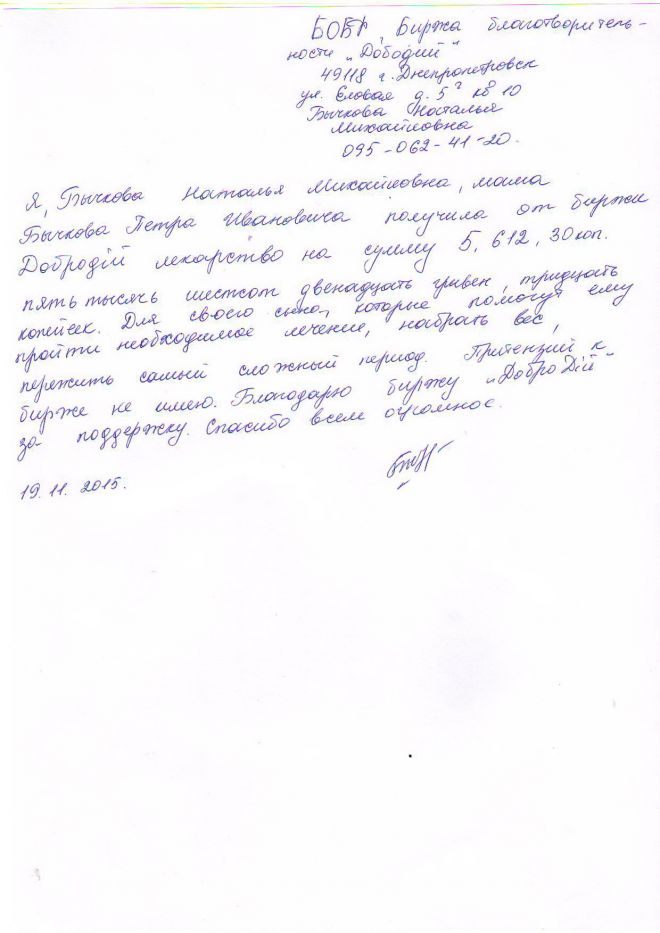 БОБР, Биржа благотворитель-
ности „Дободий"
49118 г. Днепропетровск
ул. Еловая д. 5² кв 10
Бычкова Наталья
Михайловна
095-062-41-20.
Я, Бычкова Наталья Михайловна, мама
Бычкова Петра Ивановича получила от биржи
Добродій лекарство на сумму 5, 612, 30 коп.
пять тысячь шестсот двенадцать гривен, тридцать
копейсек. Для своего сына, которые помогут ему
пройти необходимое лечение, набрать вес,
пережить самый сложный период. Притензий к
бирже не имею. Благодарю биржу „ДоброДій"
за поддержку. Спасибо всем огромное.
19.11. 2015.